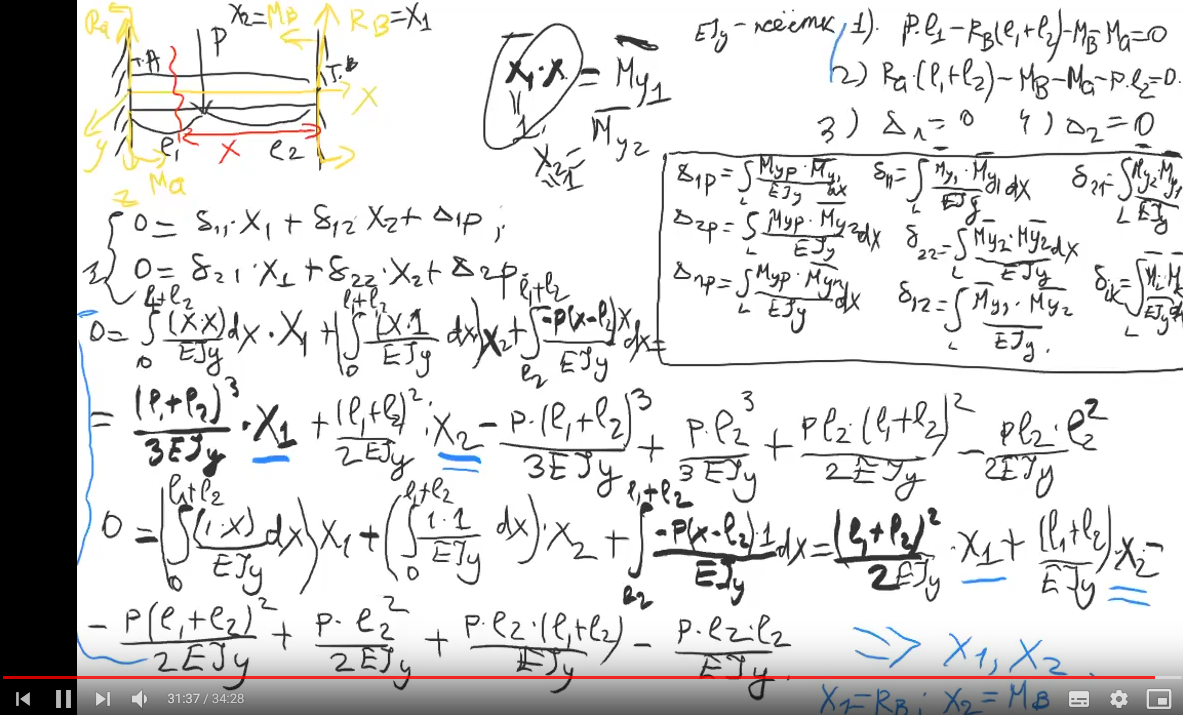 Ra X₂=M_B R_B=X₁
P
т.A т.B
X
y l₁ X l₂
z Ma
X₁·X = M̄y1
1
X₂=1 M̄y2
EJy – жёстк.
1). P·l₁–R_B(l₁+l₂)–M_B–Ma=0
2) Ra·(l₁+l₂)–M_B–Ma–P·l₂=0.
3) Δ₁=0 4) Δ₂=0
Δ1p=∫_L Myp·M̄y1/EJy dx δ11=∫_L M̄y1·M̄y1/EJy dx δ21=∫_L M̄y2·M̄y1/EJy
Δ2p=∫_L Myp·M̄y2/EJy dx δ22=∫_L M̄y2·M̄y2/EJy dx
Δnp=∫_L Myp·M̄yn/EJy dx δ12=∫_L M̄y1·M̄y2/EJy. δik=∫_L
0=δ11·X₁+δ12 X₂+Δ1p;
0=δ21·X₁+δ22·X₂+Δ2p
0=∫_0^{l₁+l₂} (X·X)/EJy dx·X₁+(∫_0^{l₁+l₂} (X·1)/EJy dx)X₂+∫_{l₂}^{l₁+l₂} –P(x–l₂)X/EJy dx=
=(l₁+l₂)³/3EJy·X₁+(l₁+l₂)²/2EJy·X₂–P·(l₁+l₂)³/3EJy+P·l₂³/3EJy+Pl₂·(l₁+l₂)²/2EJy–Pl₂·l₂²/2EJy
0=(∫_0^{l₁+l₂} (1·X)/EJy dx)X₁+(∫_0^{l₁+l₂} 1·1/EJy dx)·X₂+∫_{l₂}^{l₁+l₂} –P(x–l₂)·1/EJy dx=(l₁+l₂)²/2EJy·X₁+(l₁+l₂)/EJy·X₂–
–P(l₁+l₂)²/2EJy+P·l₂²/2EJy+P·l₂·(l₁+l₂)/EJy–P·l₂·l₂/EJy.
⇒ X₁, X₂.
X₁=R_B; X₂=M_B
31:37 / 34:28